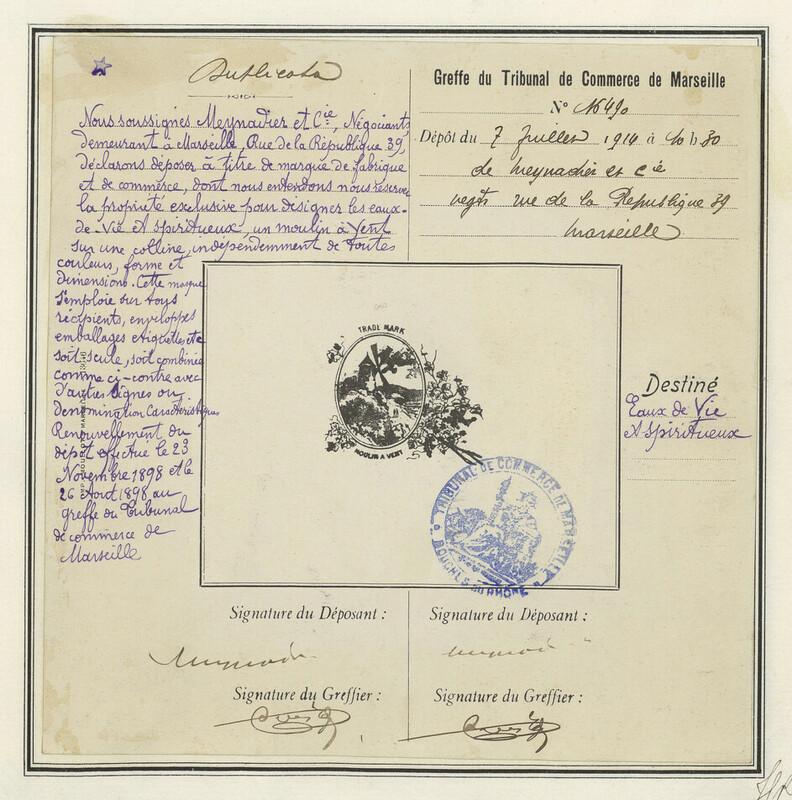 Duplicata
Nous soussignés Meynadier et Cie, Négociants
demeurant à Marseille, Rue de la République 39,
déclarons déposer à titre de marque de fabrique
et de commerce, dont nous entendons nous réserver
la propriété exclusive pour désigner les eaux-
de-Vie et Spiritueux, un moulin à Vent
sur une colline, independemment de toutes
couleurs, forme et
dimensions. Cette marque
s'emploie sur tous
récipients, enveloppes
emballages etiquettes etc
soit seule, soit combinée
comme ci-contre avec
d'autres signes ou
Denomination Caracteristiques
Renouvellement du
dépôt effectué le 23
Novembre 1898 et le
26 Aout 1898 au
greffe du Tribunal
de commerce de
Marseille
Greffe du Tribunal de Commerce de Marseille
N° 16490
Dépôt du 7 Juillet 1914 à 10 h 30
de Meynadier et Cie
negts rue de la République 39
Marseille
TRADE MARK
MOULIN A VENT
Destiné
Eaux de Vie
et Spiritueux
TRIBUNAL DE COMMERCE DE MARSEILLE
BOUCHES DU RHÔNE
Signature du Déposant :
Signature du Déposant :
Signature du Greffier :
Signature du Greffier :